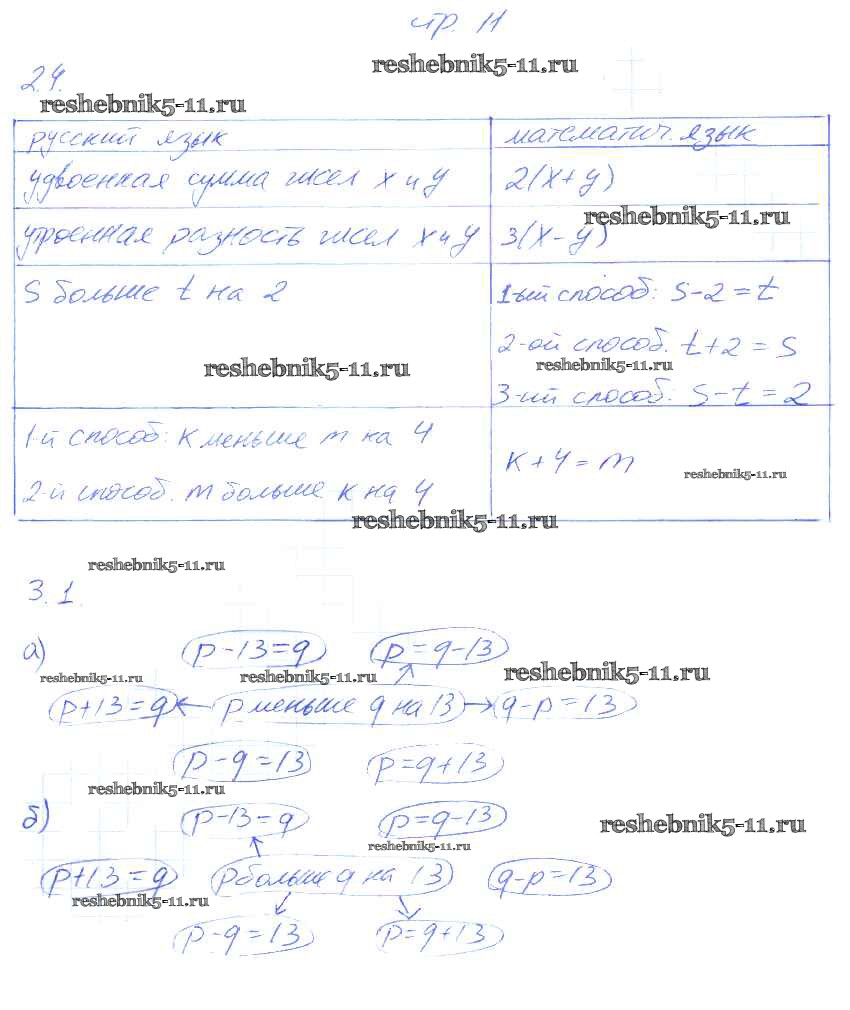 стр. 11
reshebnik5-11.ru
2.4.
reshebnik5-11.ru
русский язык
математич. язык
удвоенная сумма чисел x и y
2(x+y)
reshebnik5-11.ru
утроенная разность чисел x и y
3(x-y)
s больше t на 2
1-ый способ: s-2=t
2-ой способ. t+2=s
reshebnik5-11.ru
reshebnik5-11.ru
3-ий способ: s-t=2
1-й способ: k меньше m на 4
k+4=m
reshebnik5-11.ru
2-й способ. m больше k на 4
reshebnik5-11.ru
reshebnik5-11.ru
3.1.
а)
p-13=q
p=q-13
reshebnik5-11.ru
reshebnik5-11.ru
reshebnik5-11.ru
p+13=q
p меньше q на 13
q-p=13
p-q=13
p=q+13
reshebnik5-11.ru
б)
p-13=q
p=q-13
reshebnik5-11.ru
reshebnik5-11.ru
p+13=q
p больше q на 13
q-p=13
reshebnik5-11.ru
p-q=13
p=q+13